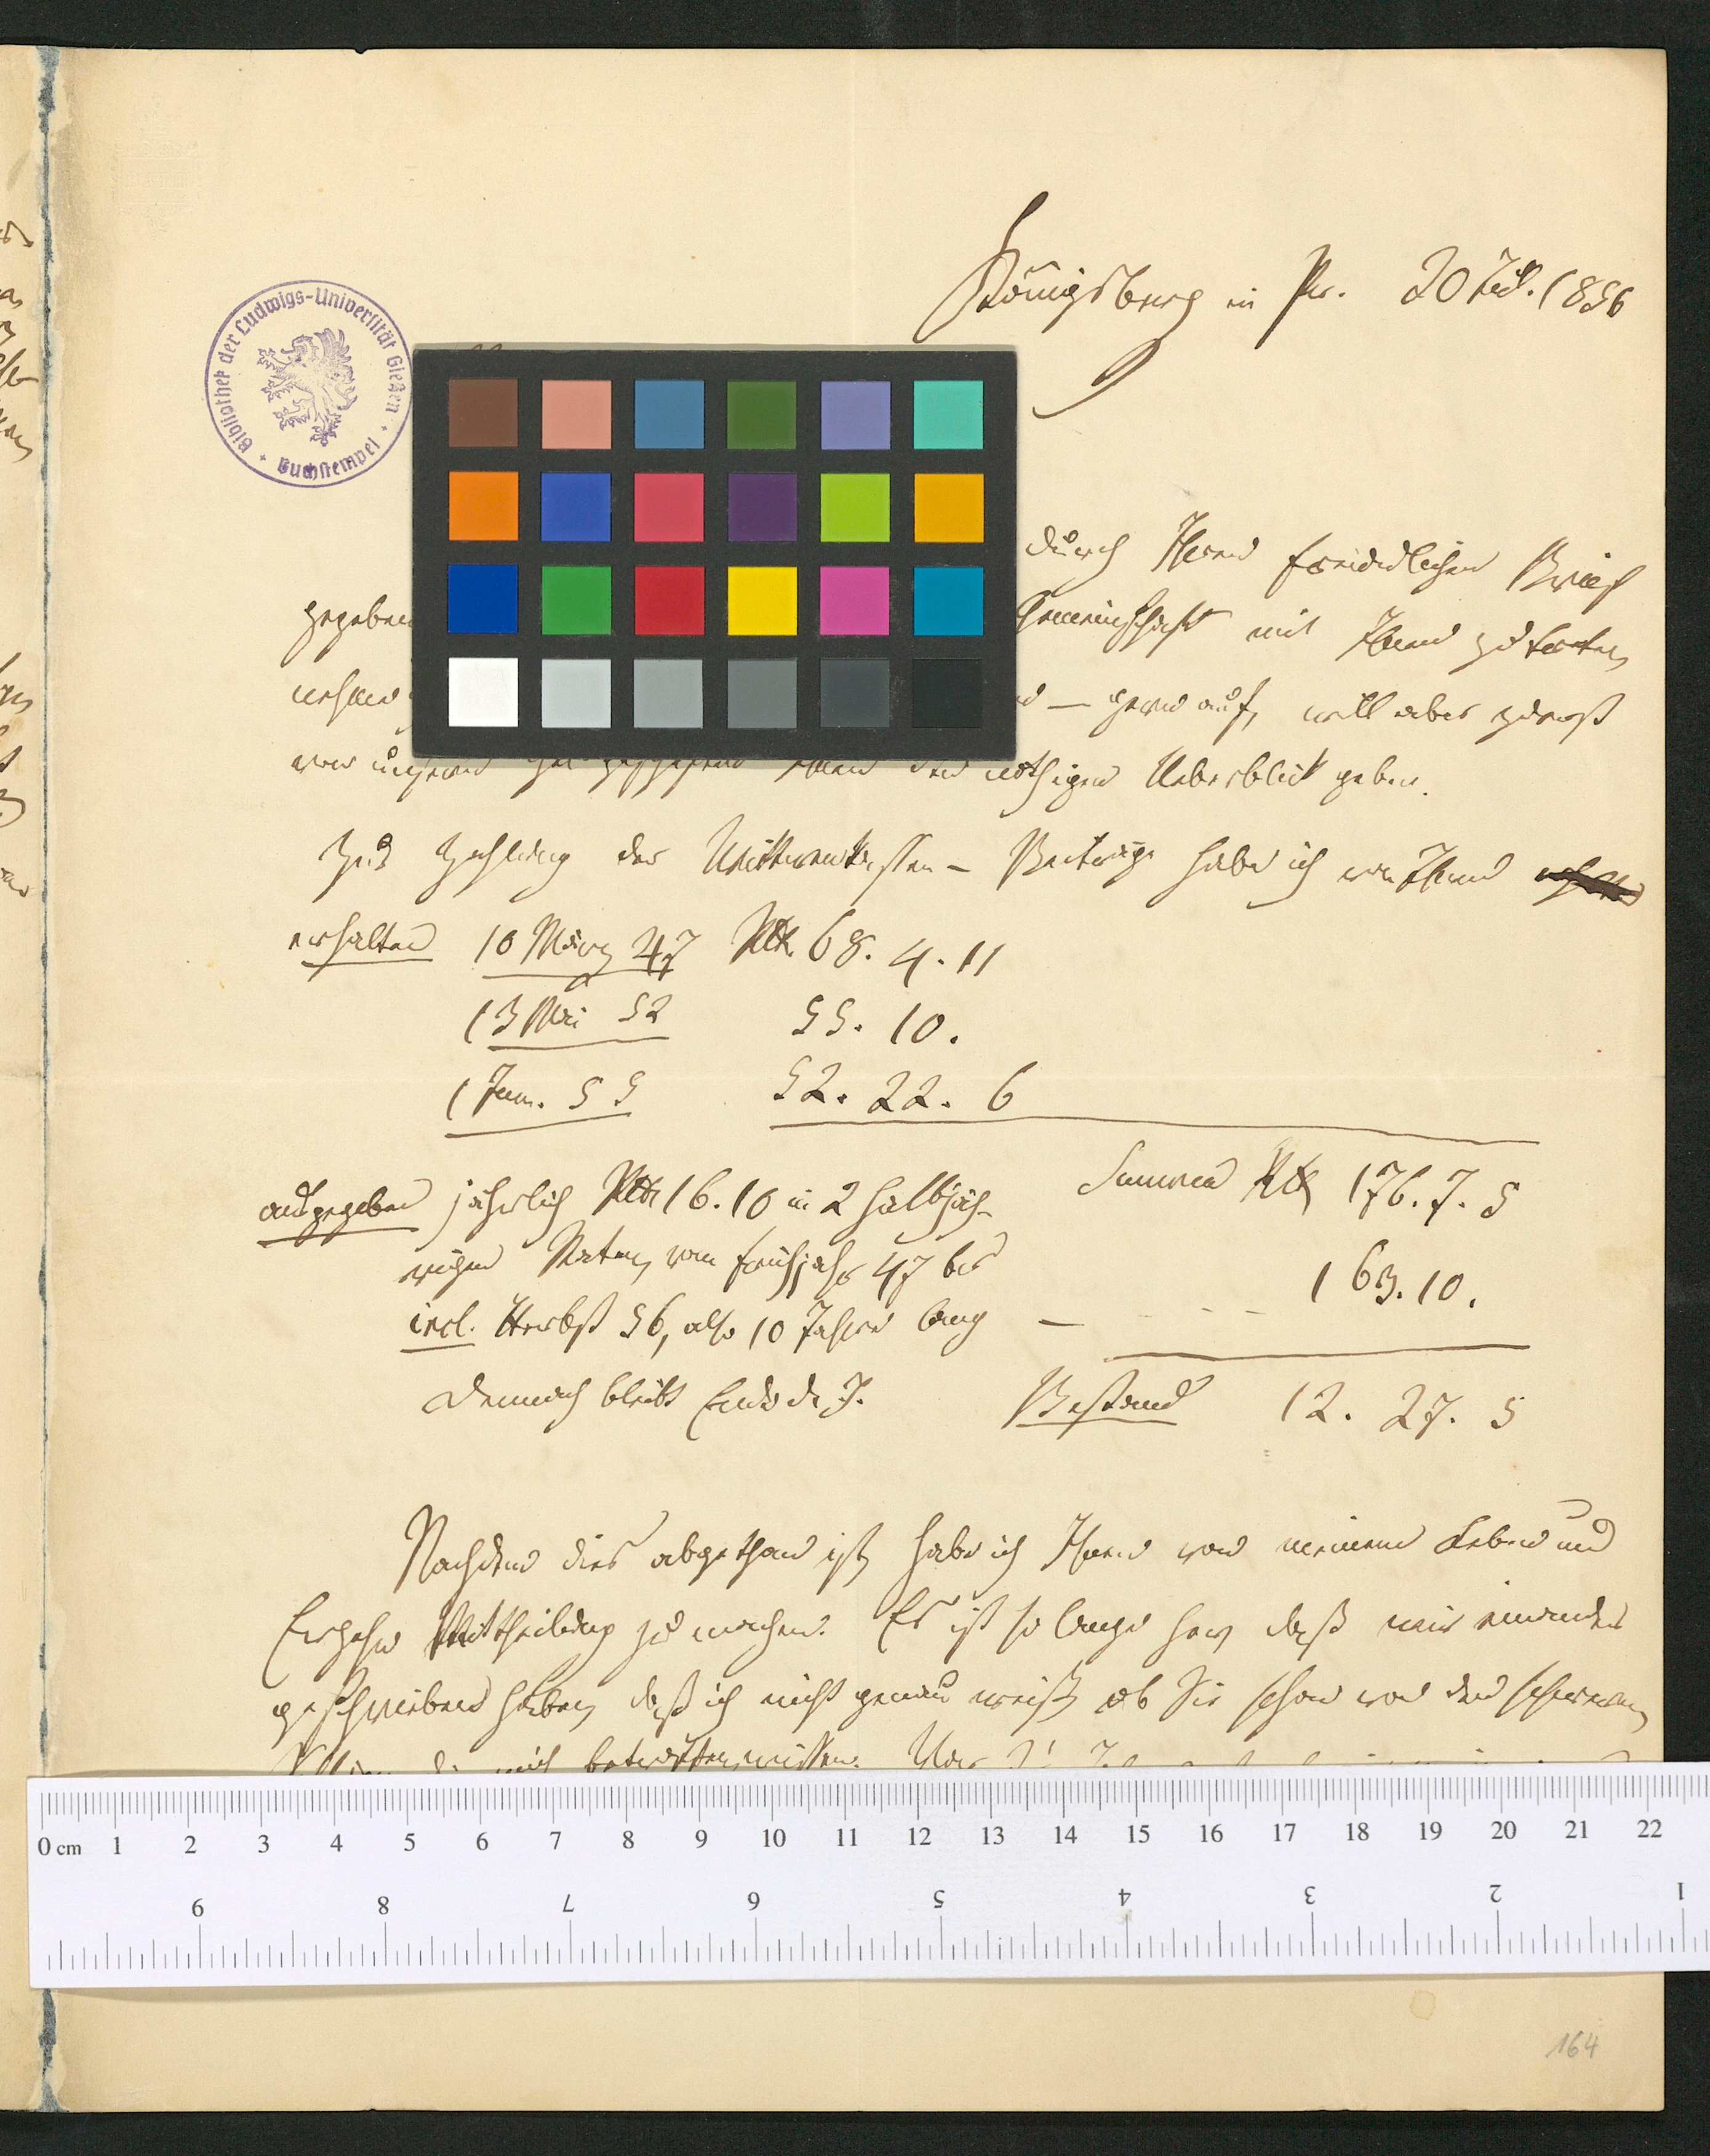 Bibliothek der Ludwigs-Universität Gießen
Buchstempel
Königsberg in Pr. 20 Jul. 1856
durch Ihren freundlichen Brief
gegeben Gemeinschaft mit Ihnen zu treten,
nehme gern auf, will aber zuerst
von unsern Ihnen den nöthigen Ueberblick geben.
Zur Zahlung der Wittwenkassen-Beiträge habe ich von Ihnen
erhalten 10 März 47 Rth. 68. 4. 11
13 Mai 52 55. 10.
1 Jan. 55 52. 22. 6
Summa Rth 176. 7. 5
ausgegeben jährlich Rth 16. 10 in 2 halbjäh-
rigen Raten, vom Frühjahr 47 bis
incl. Herbst 56, also 10 Jahre lang — 163. 10.
Demnach bleibt Ende d. J. Bestand 12. 27. 5
Nachdem dies abgethan ist, habe ich Ihnen von meinem Leben und
Ergehn Mittheilung zu machen. Es ist so lange her, daß wir einander
geschrieben haben, daß ich nicht genau weiß, ob Sie schon von den schweren
die mich betroffen, wissen. Vor
0 cm 1 2 3 4 5 6 7 8 9 10 11 12 13 14 15 16 17 18 19 20 21 22
9 8 7 6 5 4 3 2 1
164